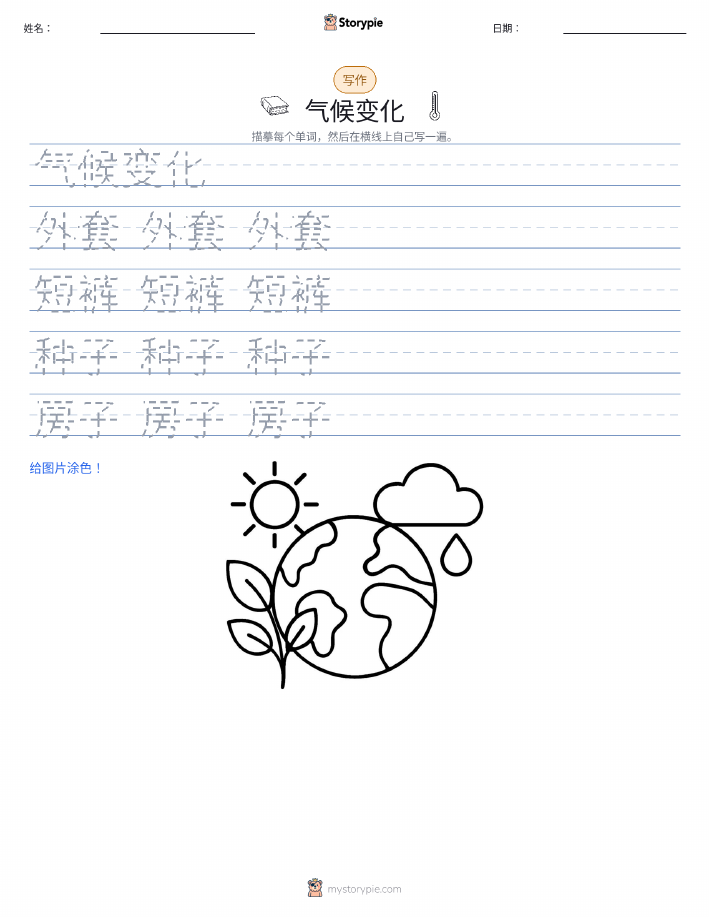 姓名：
Storypie
日期：
写作
气候变化
描摹每个单词，然后在横线上自己写一遍。
气候变化
外套 外套 外套
短裤 短裤 短裤
种子 种子 种子
房子 房子 房子
给图片涂色！
mystorypie.com